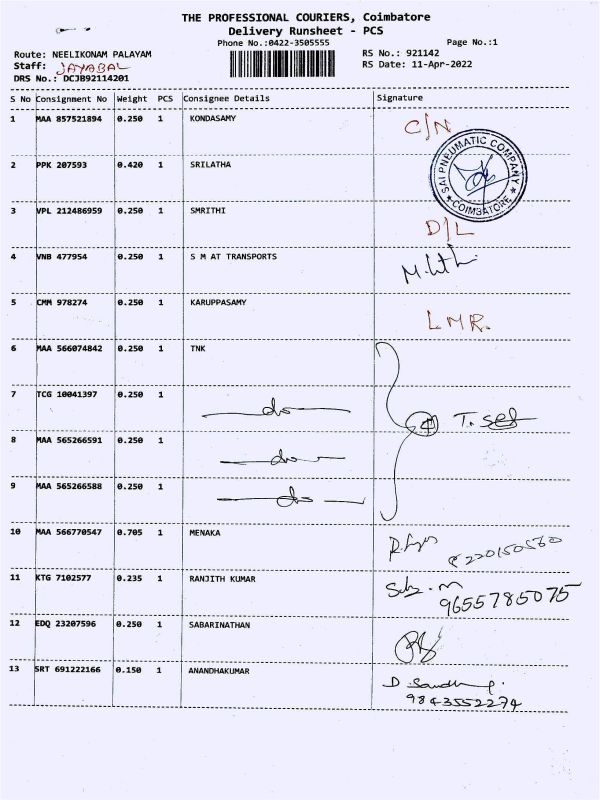 THE PROFESSIONAL COURIERS, Coimbatore
Delivery Runsheet - PCS
Phone No.:0422-3505555 Page No.:1
Route: NEELIKONAM PALAYAM RS No.: 921142
Staff: JAYABAL RS Date: 11-Apr-2022
DRS No.: DCJB92114201
S No Consignment No Weight PCS Consignee Details Signature
1 MAA 857521894 0.250 1 KONDASAMY C/N
SAI PNEUMATIC COMPANY ★ COIMBATORE ★
2 PPK 207593 0.420 1 SRILATHA
3 VPL 212486959 0.250 1 SMRITHI D/L
4 VNB 477954 0.250 1 S M AT TRANSPORTS
5 CMM 978274 0.250 1 KARUPPASAMY LMR.
6 MAA 566074842 0.250 1 TNK
7 TCG 10041397 0.250 1 do (4) T. self
8 MAA 565266591 0.250 1 do
9 MAA 565266588 0.250 1 do
10 MAA 566770547 0.705 1 MENAKA
11 KTG 7102577 0.235 1 RANJITH KUMAR
9655785075
12 EDQ 23207596 0.250 1 SABARINATHAN
13 SRT 691222166 0.150 1 ANANDHAKUMAR
9843552274